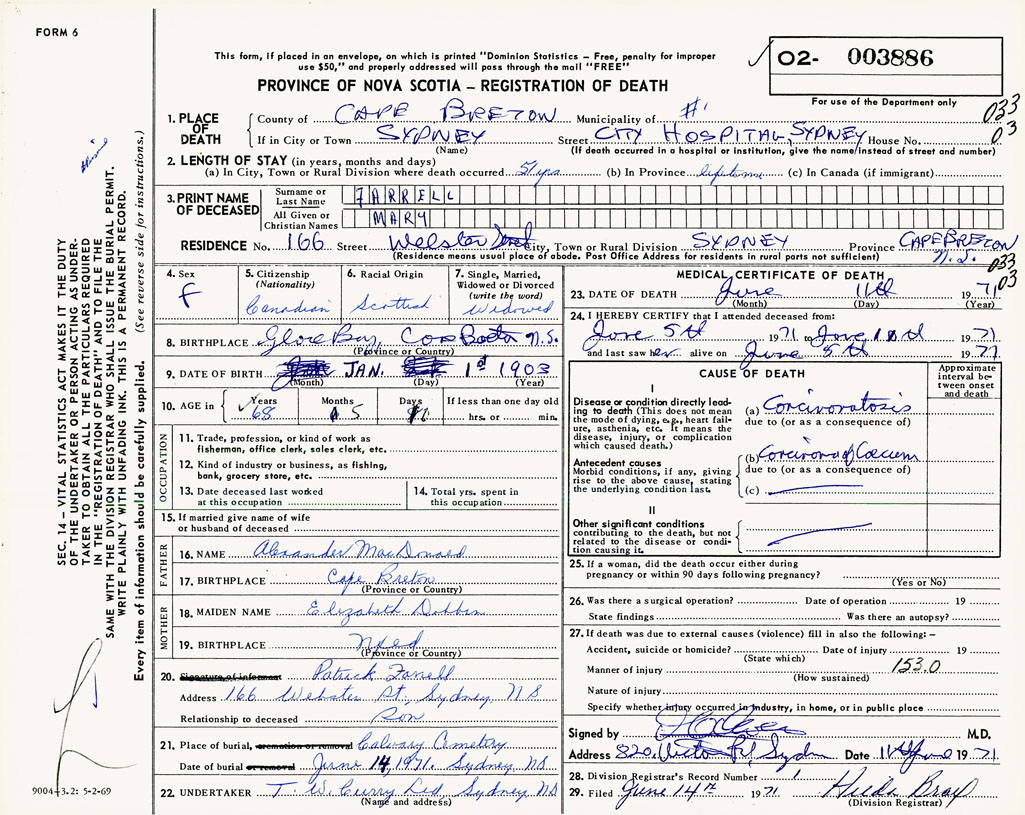 FORM 6
This form, if placed in an envelope, on which is printed "Dominion Statistics – Free, penalty for improper
use $50," and properly addressed will pass through the mail "FREE"
O2- 003886
PROVINCE OF NOVA SCOTIA – REGISTRATION OF DEATH
For use of the Department only
033
03
1. PLACE OF DEATH
County of CAPE BRETON Municipality of #1
If in City or Town SYDNEY Street CITY HOSPITAL, SYDNEY House No.
(Name) (If death occurred in a hospital or institution, give the name instead of street and number)
2. LENGTH OF STAY (in years, months and days)
(a) In City, Town or Rural Division where death occurred 51 yrs (b) In Province lifetime (c) In Canada (if immigrant)
3. PRINT NAME OF DECEASED
Surname or Last Name FARRELL
All Given or Christian Names MARY
RESIDENCE No. 166 Street Webster Street City, Town or Rural Division SYDNEY Province CAPE BRETON N.S.
(Residence means usual place of abode. Post Office Address for residents in rural parts not sufficient)
033
03
4. Sex F
5. Citizenship (Nationality) Canadian
6. Racial Origin Scottish
7. Single, Married, Widowed or Divorced (write the word) Widowed
8. BIRTHPLACE Glace Bay, N.S.
(Province or Country)
9. DATE OF BIRTH JAN. 1st 1903
(Month) (Day) (Year)
10. AGE in Years 68 Months 5 Days If less than one day old hrs. or min.
OCCUPATION
11. Trade, profession, or kind of work as fisherman, office clerk, sales clerk, etc.
12. Kind of industry or business, as fishing, bank, grocery store, etc.
13. Date deceased last worked at this occupation
14. Total yrs. spent in this occupation
15. If married give name of wife or husband of deceased
FATHER
16. NAME Alexander MacDonald
17. BIRTHPLACE Cape Breton
(Province or Country)
MOTHER
18. MAIDEN NAME Elizabeth Dobbin
19. BIRTHPLACE Nfled
(Province or Country)
20. Signature of informant Patrick Farrell
Address 166 Webster St, Sydney, NS
Relationship to deceased Son
21. Place of burial, cremation or removal Calvary Cemetery
Date of burial or removal June 14, 1971. Sydney, NS
22. UNDERTAKER T. W. Curry Ltd, Sydney NS
(Name and address)
MEDICAL CERTIFICATE OF DEATH
23. DATE OF DEATH June 11th 1971
(Month) (Day) (Year)
24. I HEREBY CERTIFY that I attended deceased from:
June 5th 1971 to June 1971
and last saw her alive on June 5th 1971
CAUSE OF DEATH
Approximate interval between onset and death
I
Disease or condition directly leading to death (This does not mean the mode of dying, e.g., heart failure, asthenia, etc. It means the disease, injury, or complication which caused death.)
(a) Carcinomatosis
due to (or as a consequence of)
Antecedent causes
Morbid conditions, if any, giving rise to the above cause, stating the underlying condition last.
(b) Carcinoma of Caecum
due to (or as a consequence of)
(c)
II
Other significant conditions
contributing to the death, but not related to the disease or condition causing it.
25. If a woman, did the death occur either during
pregnancy or within 90 days following pregnancy?
(Yes or No)
26. Was there a surgical operation? Date of operation 19
State findings Was there an autopsy?
27. If death was due to external causes (violence) fill in also the following: –
Accident, suicide or homicide? Date of injury 19
(State which)
Manner of injury 153.0
(How sustained)
Nature of injury
Specify whether injury occurred in industry, in home, or in public place
Signed by M.D.
Address 820 Date 11 June 1971
28. Division Registrar's Record Number 1
29. Filed June 14th 1971 Hilda Bray
(Division Registrar)
SEC. 14 – VITAL STATISTICS ACT MAKES IT THE DUTY
OF THE UNDERTAKER OR PERSON ACTING AS UNDER-
TAKER TO OBTAIN ALL THE PARTICULARS REQUIRED
IN THE "REGISTRATION OF DEATH" AND TO FILE THE
SAME WITH THE DIVISION REGISTRAR WHO SHALL ISSUE THE BURIAL PERMIT.
WRITE PLAINLY WITH UNFADING INK. THIS IS A PERMANENT RECORD.
Every item of information should be carefully supplied. (See reverse side for instructions.)
9004-3.2: 5-2-69